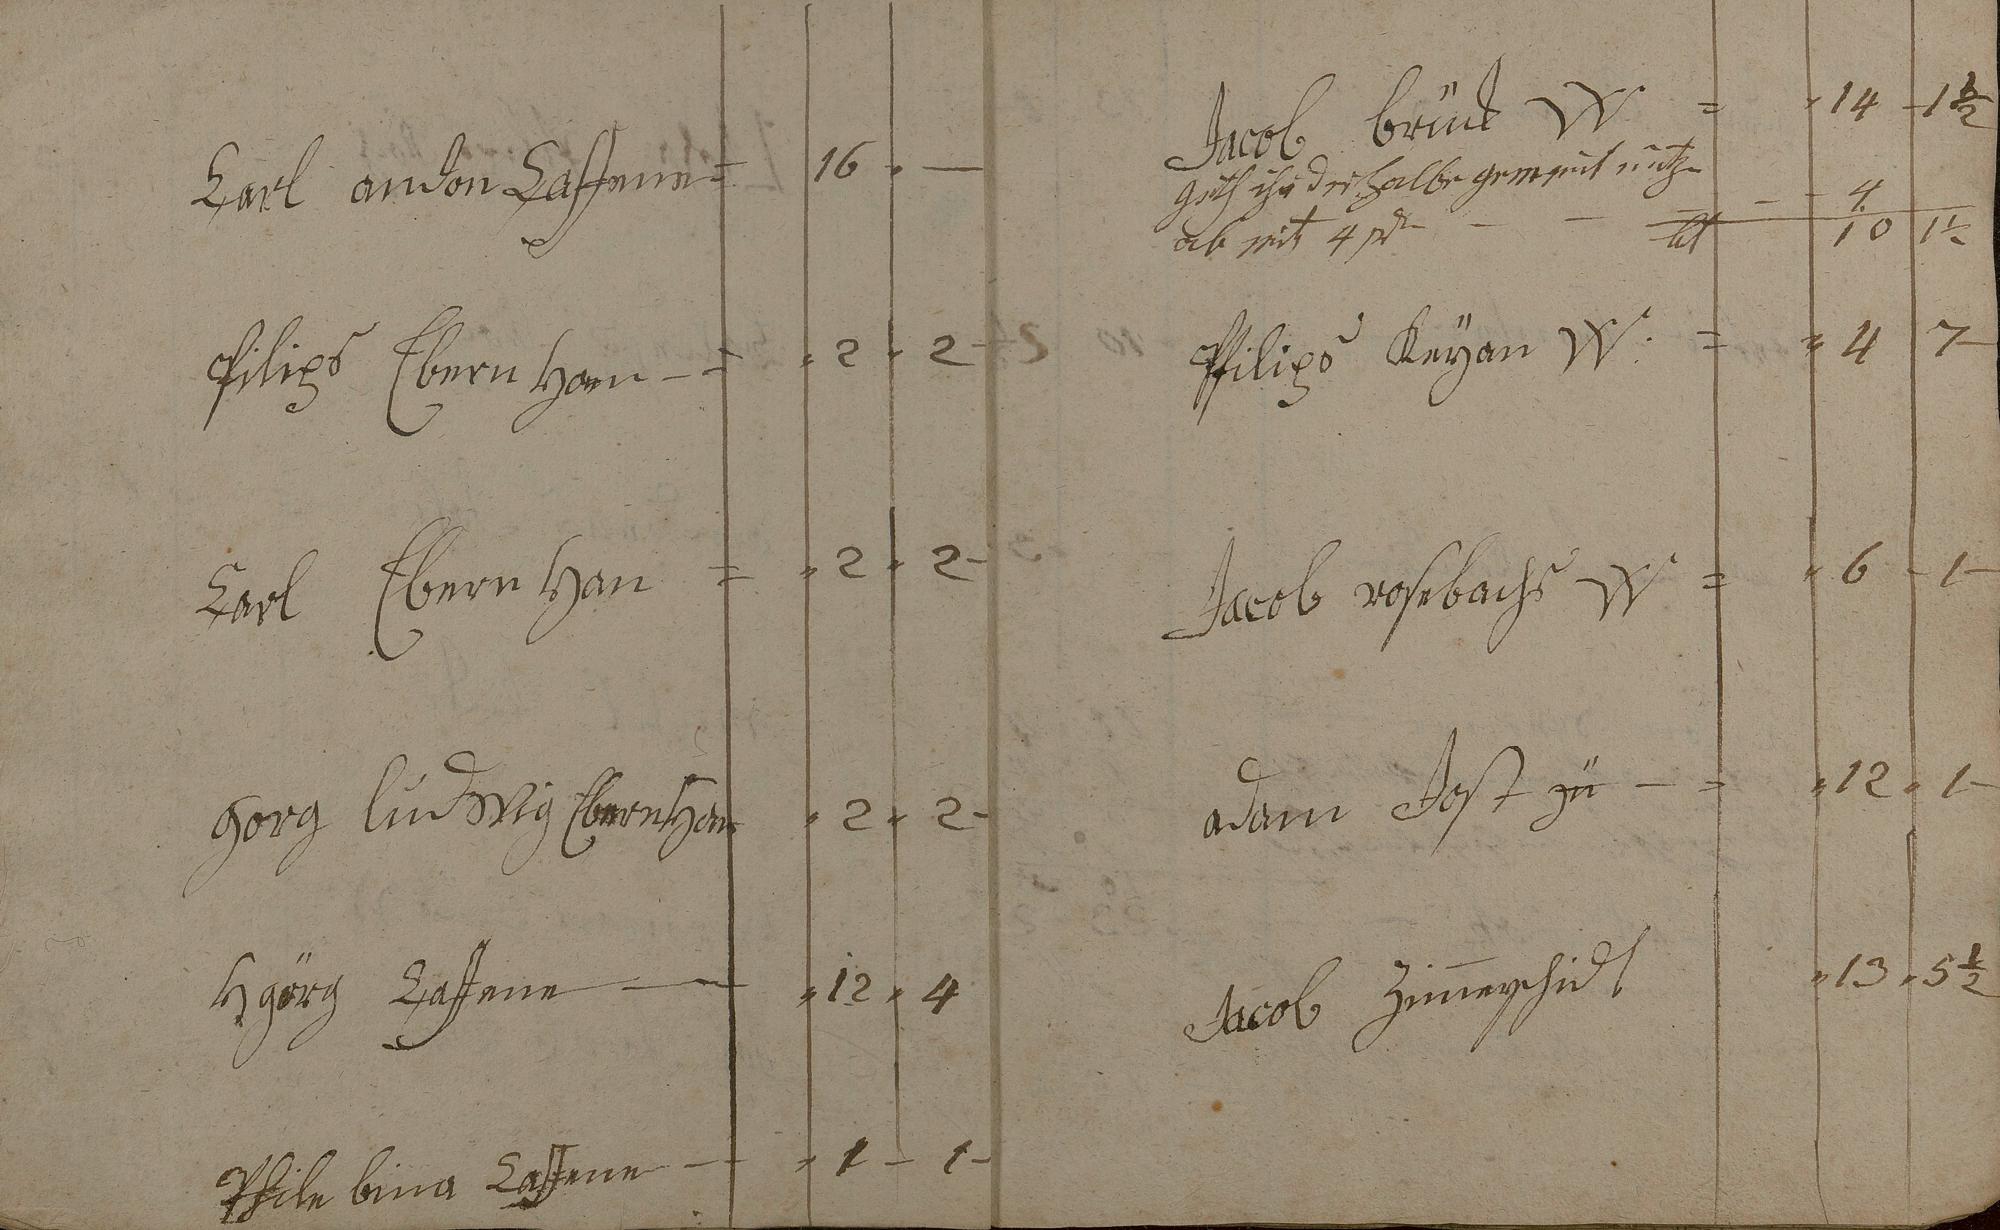 Carl andon Lassene = 16 . —
Pfilips Ebern Han – = " 2 " 2 –
Carl Ebern Han = " 2 " 2 –
Gorg ludwig Ebern Han " 2 " 2 –
H görg Lassene — " 12 " 4
Pfile bina Lassene — " 1 – 1 –
Jacob brück W = " 14 – 1 1/2
geth ihr der halbe gemeint nutz – – 4.
ab mit 4 – – 10 1 1/2
Pfilips Keÿan W. = " 4 7 –
Jacob rosebachs W = " 6 – 1 –
adam Jost zü – = " 12 " 1 –
Jacob Zim̄erschidt " 13 " 5 1/2